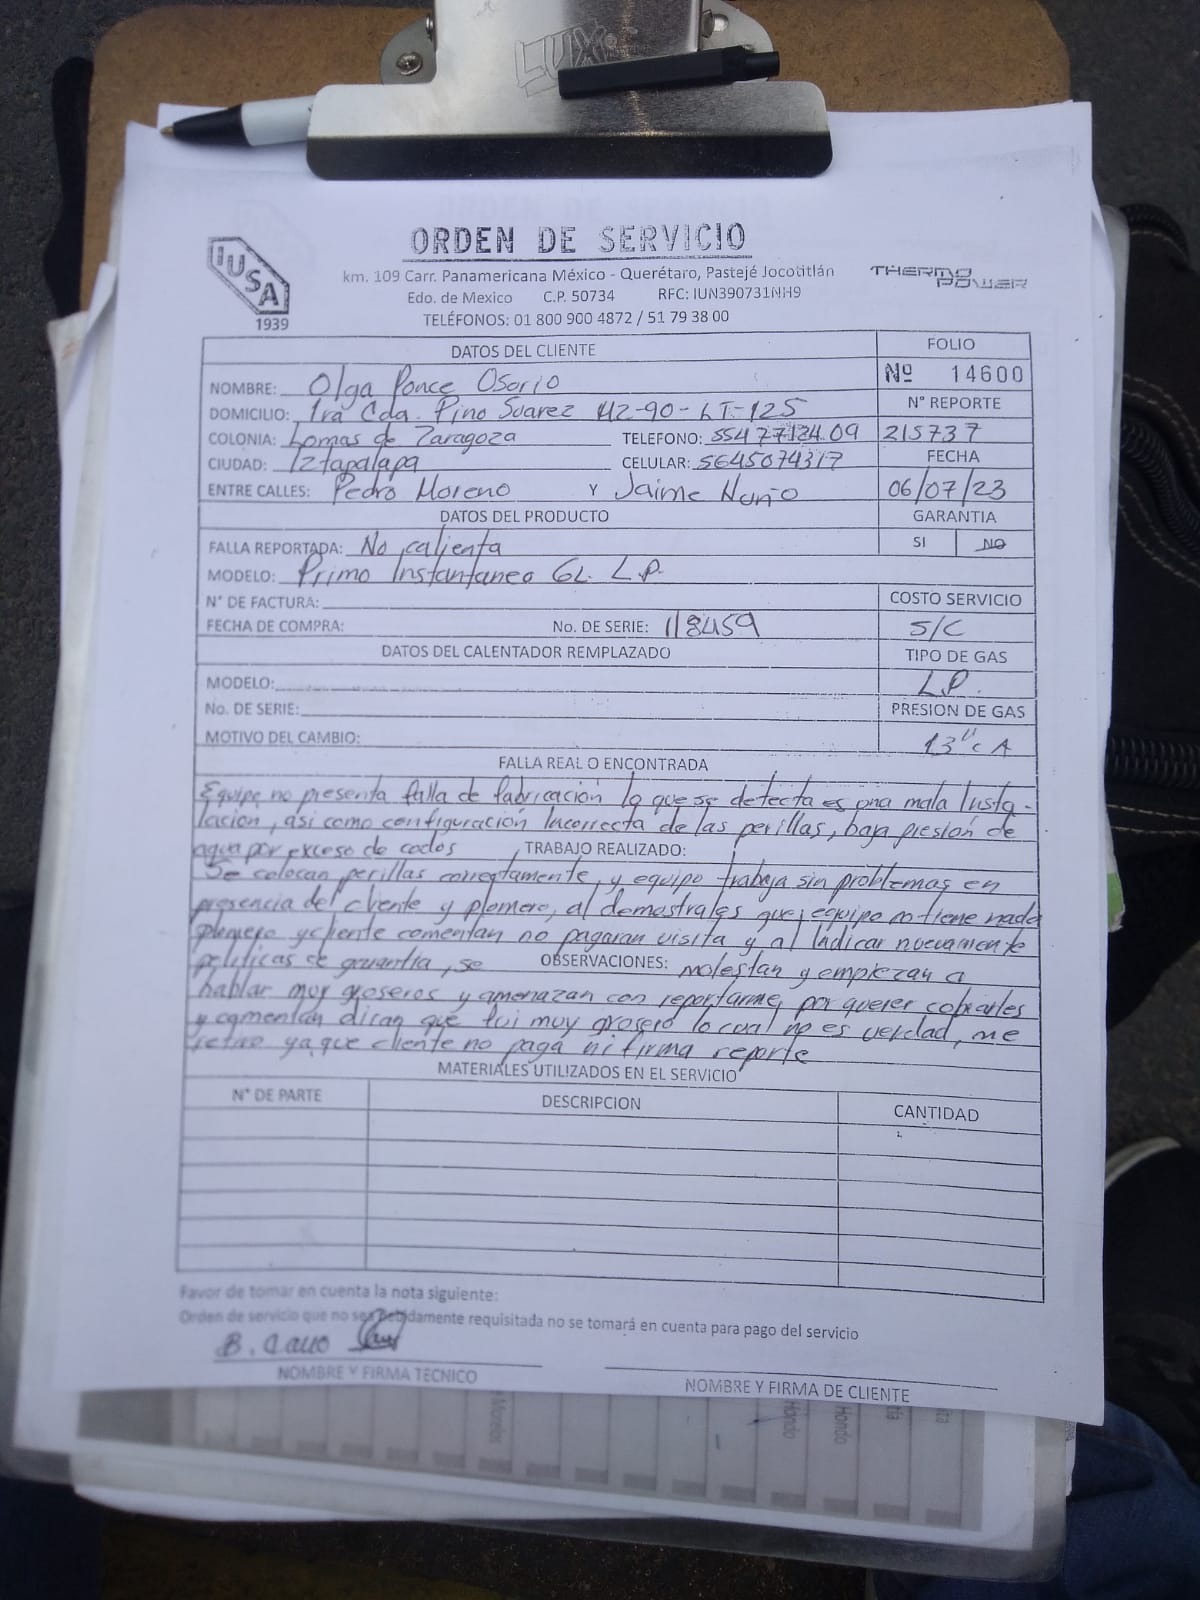 LUX
ORDEN DE SERVICIO
IUSA
1939
km. 109 Carr. Panamericana México - Querétaro, Pastejé Jocotitlán
THERMO POWER
Edo. de Mexico C.P. 50734 RFC: IUN390731NH9
TELÉFONOS: 01 800 900 4872 / 51 79 38 00
DATOS DEL CLIENTE FOLIO
NOMBRE: Olga Ponce Osorio Nº 14600
DOMICILIO: 1ra Cda. Pino Suarez MZ-90-LT-125 N° REPORTE
COLONIA: Lomas de Zaragoza TELEFONO: 5547712409 215737
CIUDAD: Iztapalapa CELULAR: 5645074317 FECHA
ENTRE CALLES: Pedro Moreno Y Jaime Nuño 06/07/23
DATOS DEL PRODUCTO GARANTIA
FALLA REPORTADA: No calienta SI NO
MODELO: Primo Instantaneo 6L. L.P.
N° DE FACTURA: COSTO SERVICIO
FECHA DE COMPRA: No. DE SERIE: 118459 S/C
DATOS DEL CALENTADOR REMPLAZADO TIPO DE GAS
MODELO: L.P.
No. DE SERIE: PRESION DE GAS
MOTIVO DEL CAMBIO: 13"cA
FALLA REAL O ENCONTRADA
Equipo no presenta falla de fabricación lo que se detecta es una mala Insta-
lacion, asi como configuración Incorrecta de las perillas, baja presión de
agua por exceso de codos TRABAJO REALIZADO:
Se colocan perillas correctamente, y equipo trabaja sin problemas en
presencia del cliente y plomero, al demostrales que equipo n tiene nada
plomero y cliente comentan no pagaran visita y al Indicar nuevamente
politicas de garantia, se OBSERVACIONES: molestan y empiezan a
hablar muy groseros y amenazan con reportarme, por querer cobrarles
y comentan diran que fui muy grosero lo cual no es verdad, me
retiro ya que cliente no paga ni firma reporte
MATERIALES UTILIZADOS EN EL SERVICIO
N° DE PARTE DESCRIPCION CANTIDAD
Favor de tomar en cuenta la nota siguiente:
Orden de servicio que no sea debidamente requisitada no se tomará en cuenta para pago del servicio
NOMBRE Y FIRMA TECNICO NOMBRE Y FIRMA DE CLIENTE